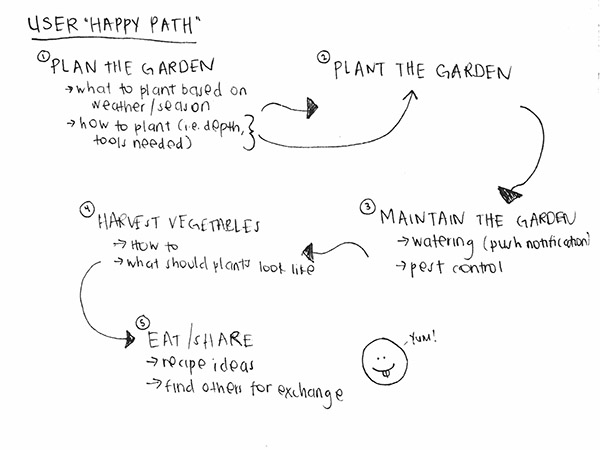 USER "HAPPY PATH"
① PLAN THE GARDEN
→ what to plant based on
weather/season
→ how to plant (i.e. depth,
tools needed)
② PLANT THE GARDEN
③ MAINTAIN THE GARDEN
→ watering (push notification)
→ pest control
④ HARVEST VEGETABLES
→ HOW TO
→ what should plants look like
⑤ EAT/SHARE
→ recipe ideas
→ find others for exchange
YUM!